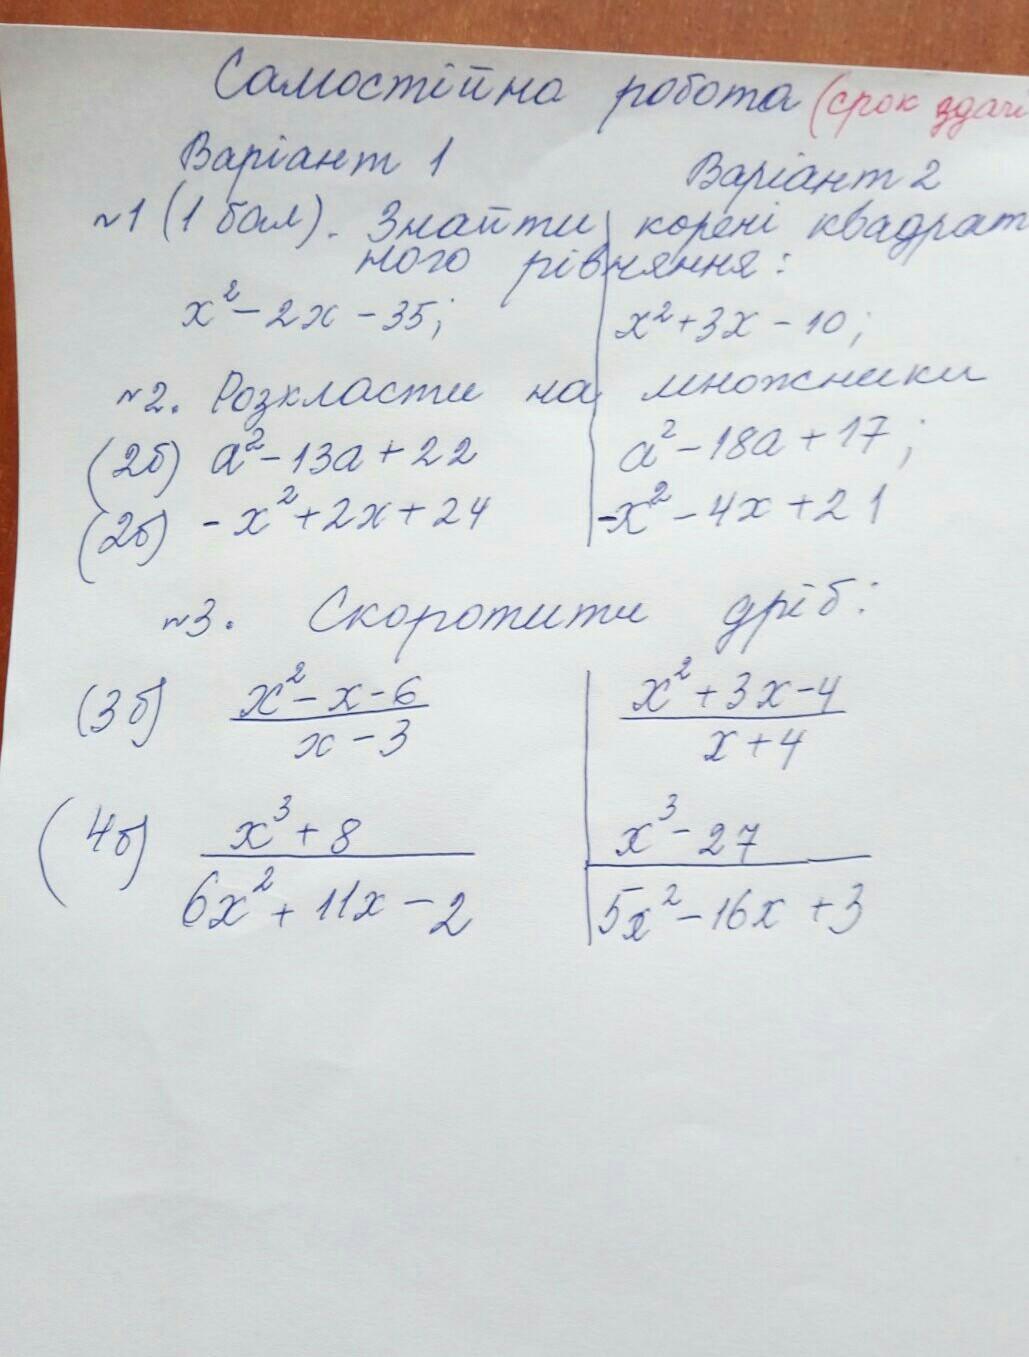 Самостійна робота (срок здачі
Варіант 1 Варіант 2
№1 (1 бал). Знайти корені квадрат
ного рівняння:
x² - 2x - 35; x² + 3x - 10;
№2. Розкласти на множники
(2б) a² - 13a + 22 a² - 18a + 17;
(2б) - x² + 2x + 24 -x² - 4x + 21
№3. Скоротити дріб:
(3б) x² - x - 6 x² + 3x - 4
x - 3 x + 4
(4б) x³ + 8 x³ - 27
6x² + 11x - 2 5x² - 16x + 3